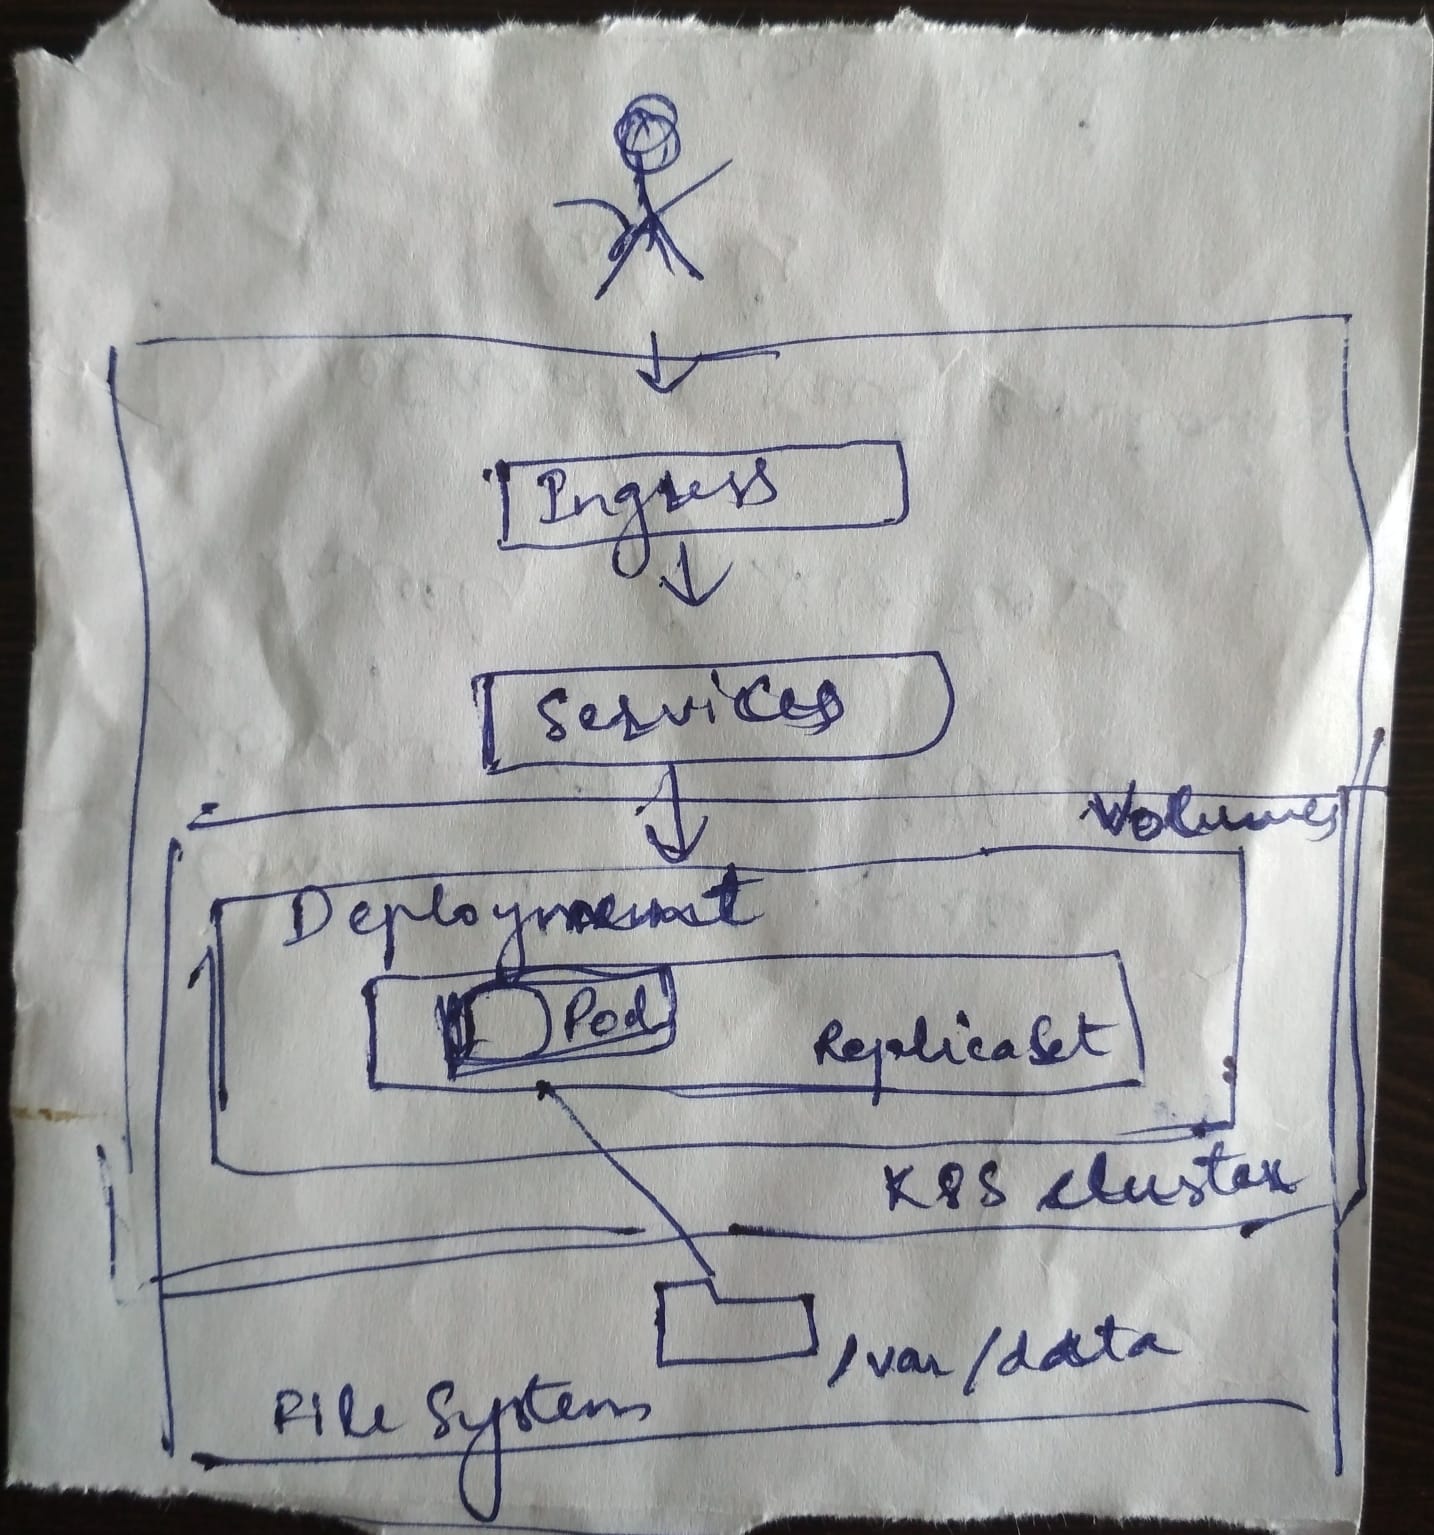 Ingress
Services
Volumes
Deployment
Pod
ReplicaSet
K8S cluster
/var/data
File System